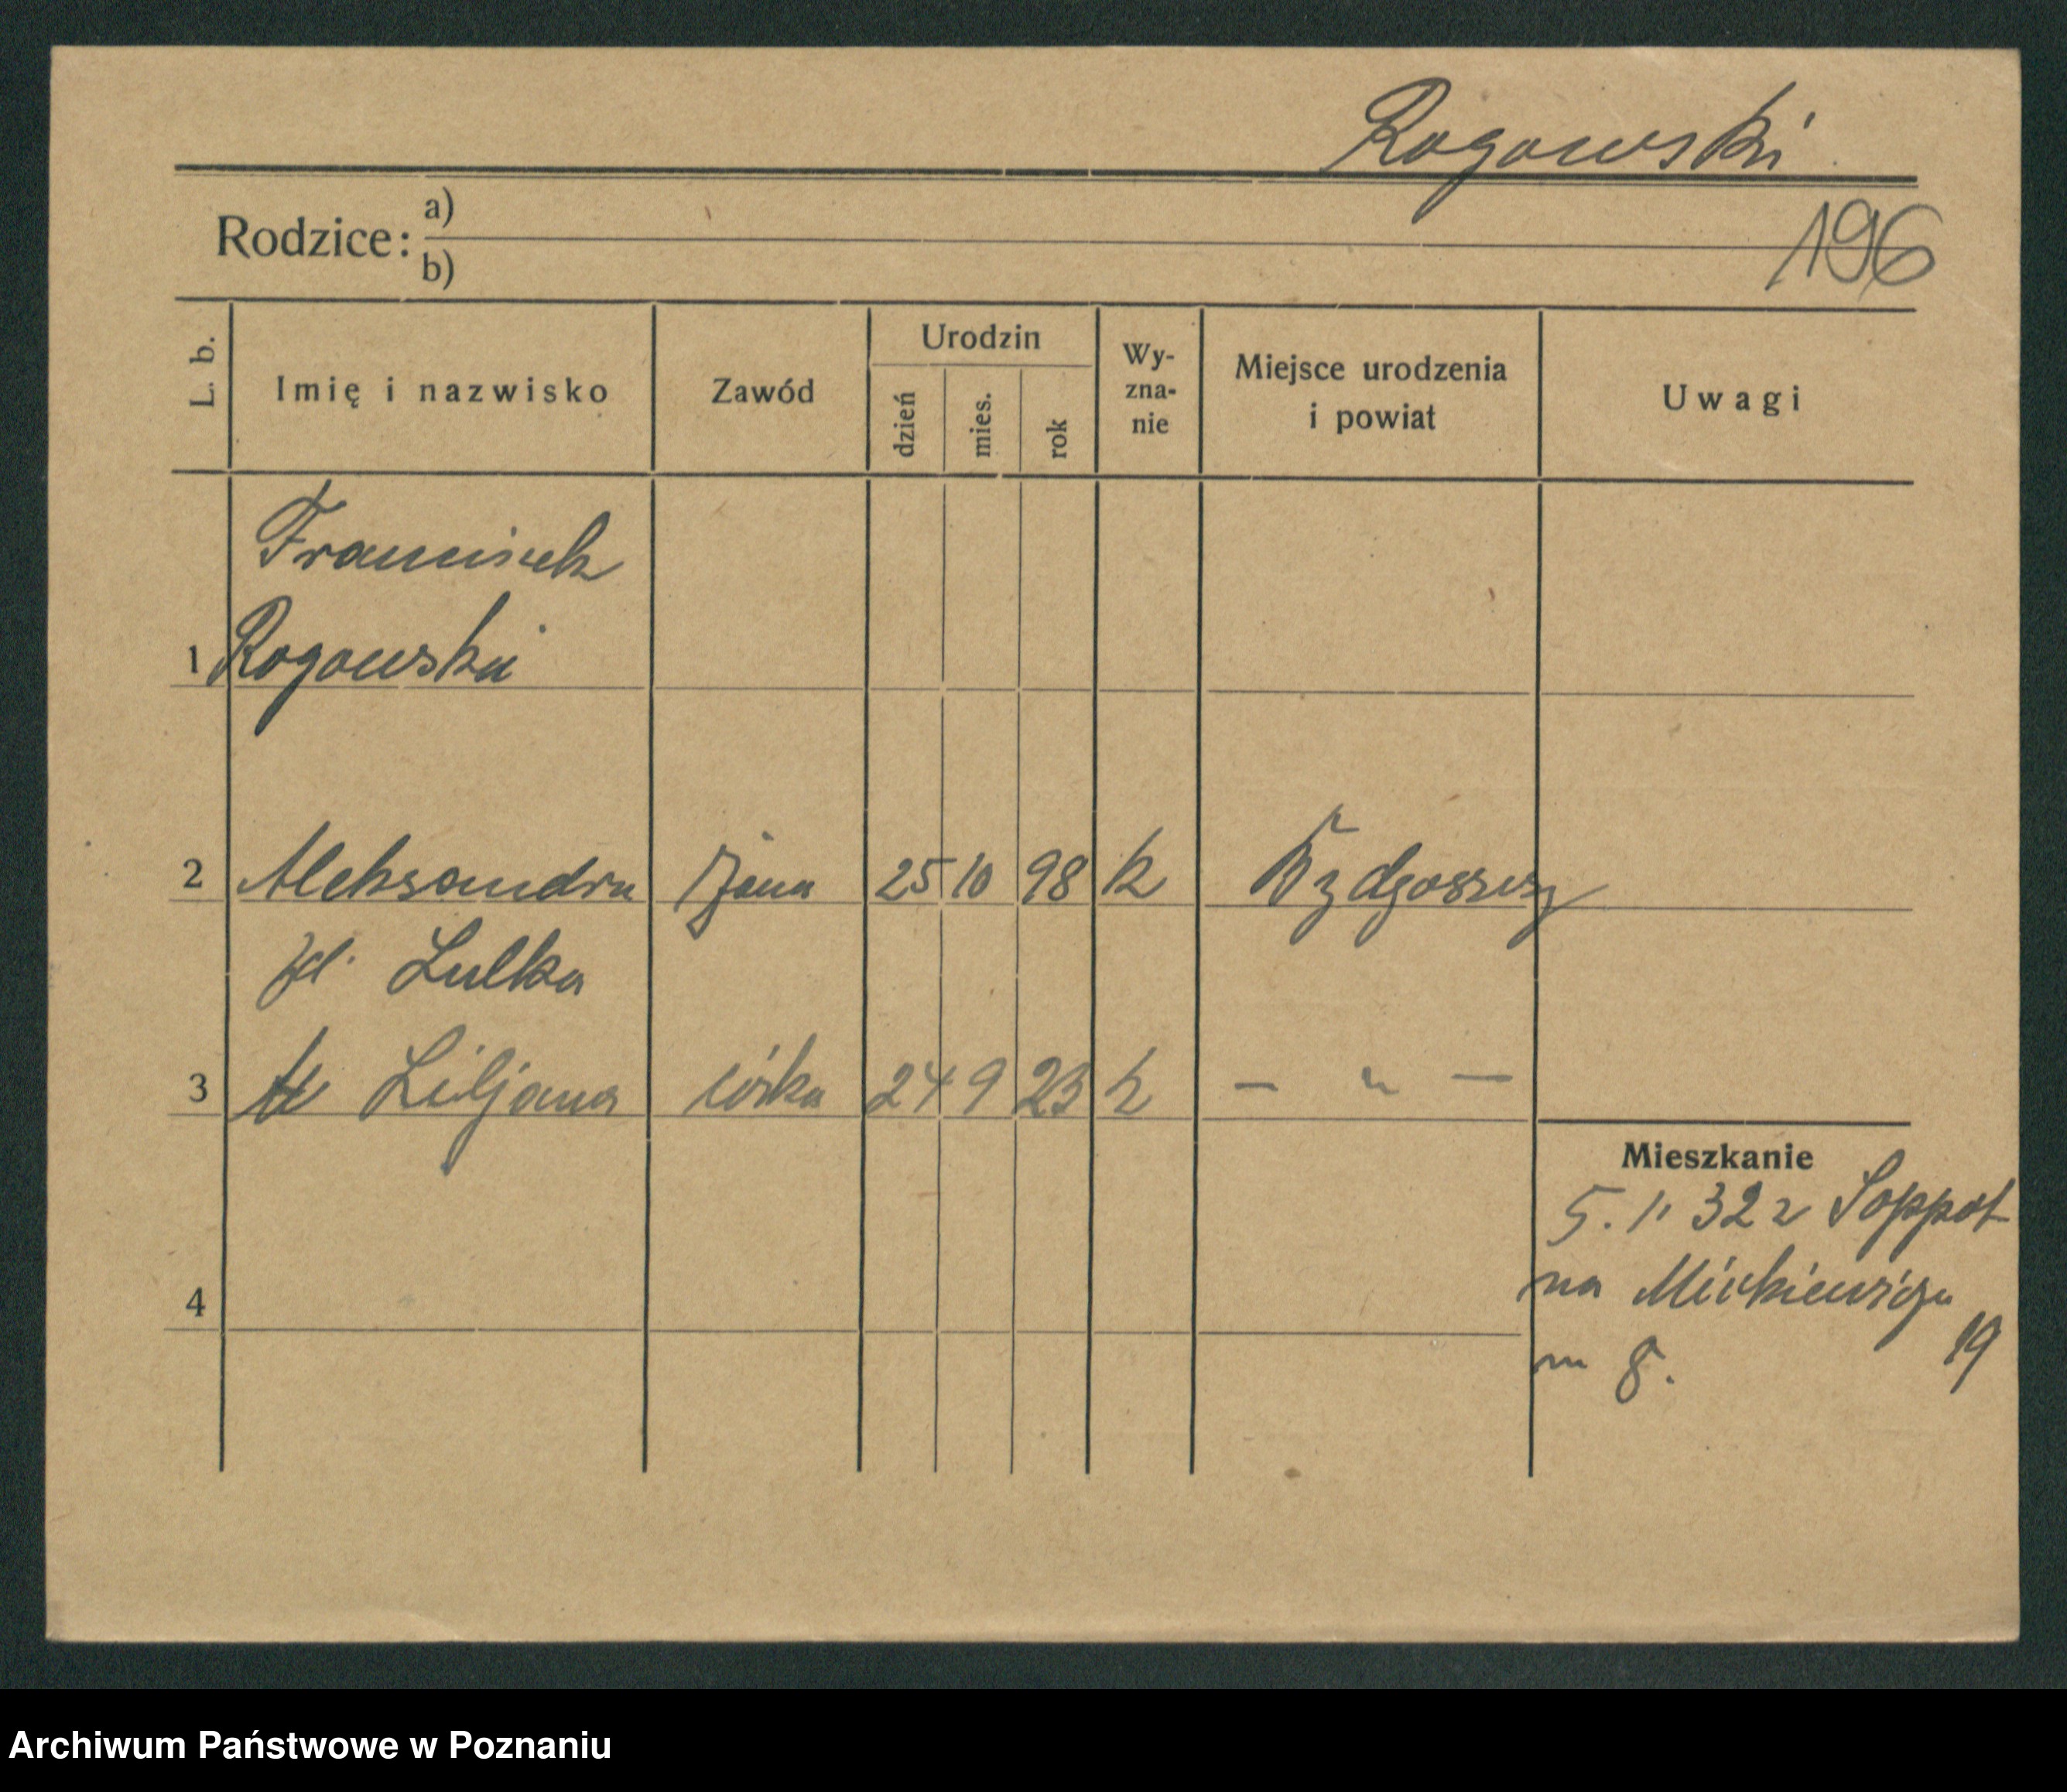 Rogowski
196
Rodzice: a)
b)
L. b.
Imię i nazwisko
Zawód
Urodzin
dzień
mies.
rok
Wy-
zna-
nie
Miejsce urodzenia
i powiat
Uwagi
Franciszek
1 Rogowski
2 Aleksandra żona 25 10 98 k Bydgoszcz
Lulka
3 Liljana córka 24 9 23 k — " —
Mieszkanie
5. 1. 32 z Soppot
na Mickiewicza
19
m 8.
4
Archiwum Państwowe w Poznaniu